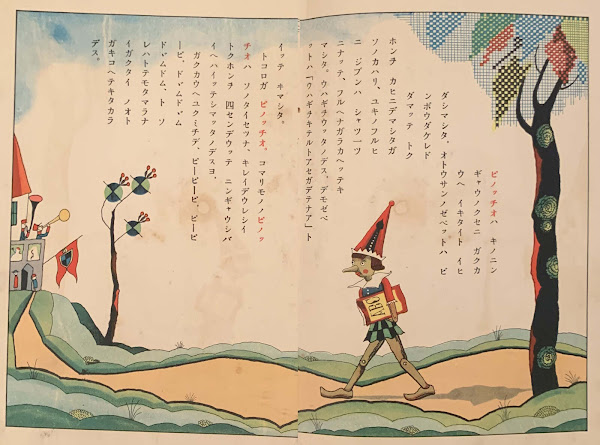 ピノッチオハ キノニン
ギャウノクセニ ガクカ
ウヘ イキタイト イヒ
ダシマシタ。オトウサンノゼペットハ ビ
ンボウダケレド
ダマッテ トク
ホンヲ カヒニデマシタガ
ソノカハリ、ユキノフルヒ
ニ ジブンハ シャツ一ツ
ニナッテ、フルヘナガラカヘッテキ
マシタ。ウハギヲウッタノデス、デモゼペ
ットハ「ウハギヲキテルトアセガデテナア」ト
イッテ ヰマシタ。
トコロガ ピノッチオ。コマリモノノピノッ
チオハ ソノタイセツナ、キレイデウレシイ
トクホンヲ 四センデウッテ ニンギャウシバ
イヘハイッテシマッタノデスヨ。
ガクカウヘユクミチデ、ピーピーピ、ピーピ
ーピ、ド、ムド、ム
ド、ムド、ム、ト ソ
レハトテモタマラナ
イガクタイ ノオト
ガキコヘテキタカラ
デス。
ABC